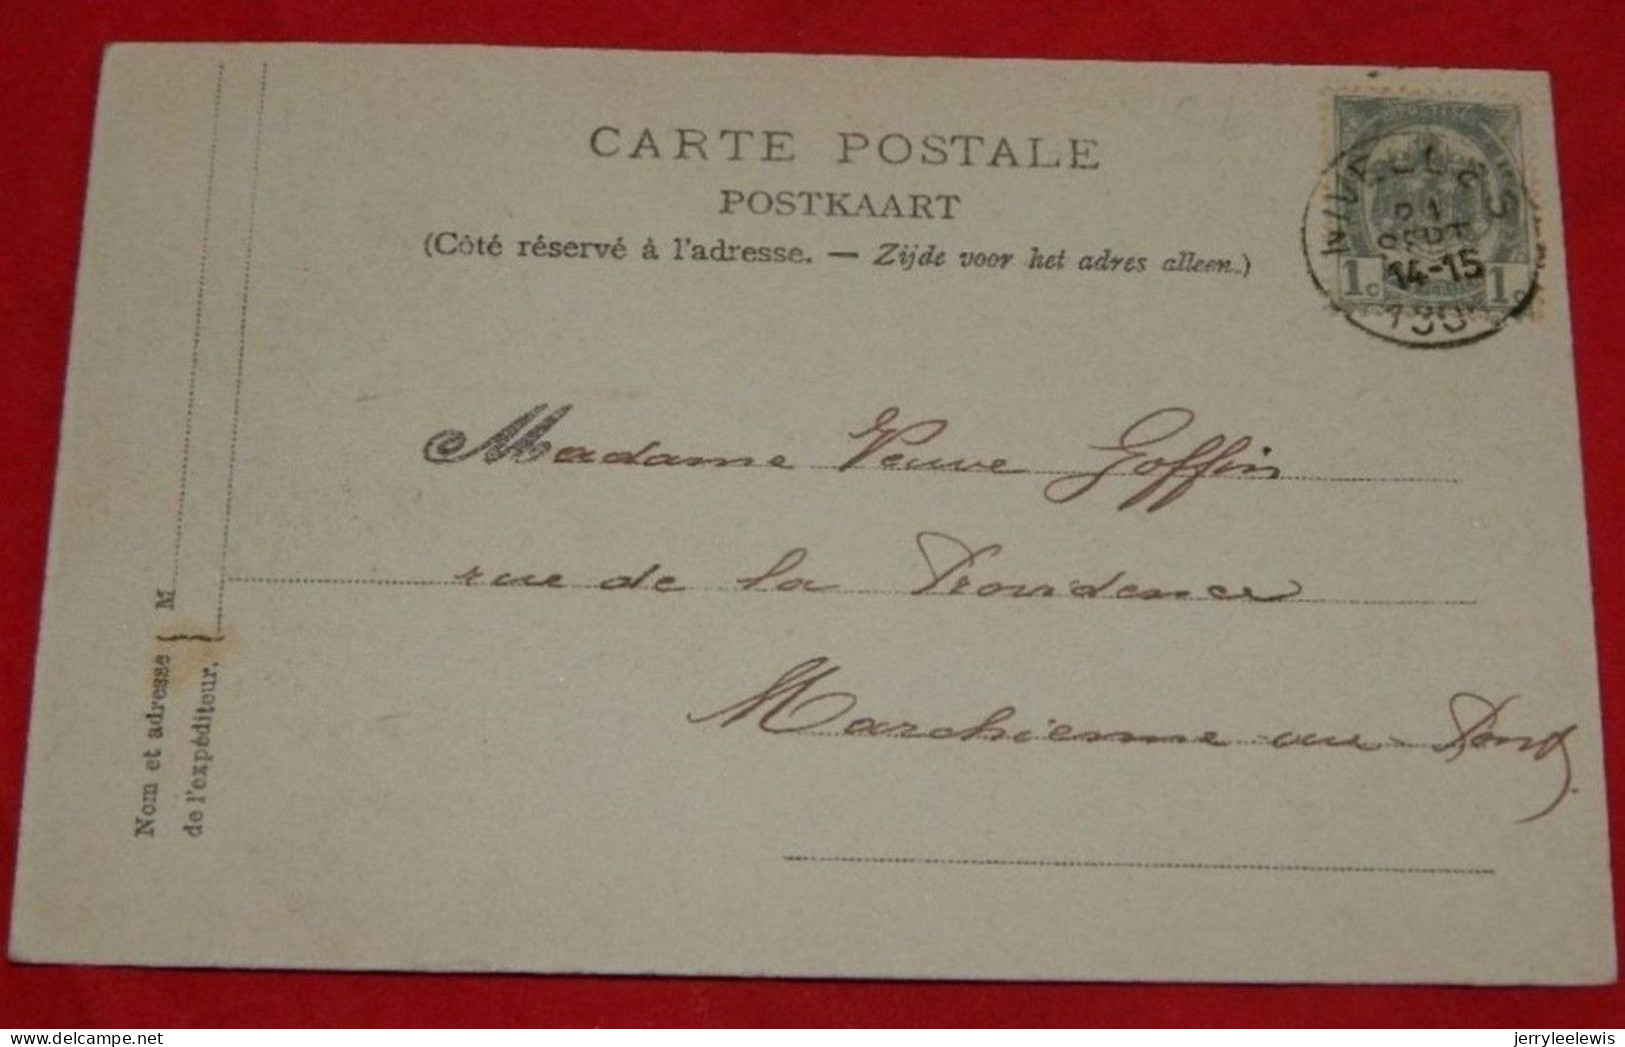 CARTE POSTALE
POSTKAART
(Côté réservé à l'adresse. — Zijde voor het adres alleen.)
NIVELLES
21
SEPT
14-15
1c 1c
Madame Veuve Goffin
rue de la Providence
Marchienne au Pont
Nom et adresse { M
de l'expéditeur. }
jerryleelewis
delcampe.net